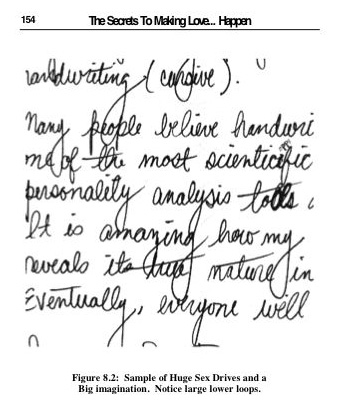 154 The Secrets To Making Love... Happen
handwriting (cursive).
Many people believe handwri
of the most scientific
personality analysis tools
It is amazing how my
reveals its true nature in
Eventually, everyone will
Figure 8.2: Sample of Huge Sex Drives and a
Big imagination. Notice large lower loops.